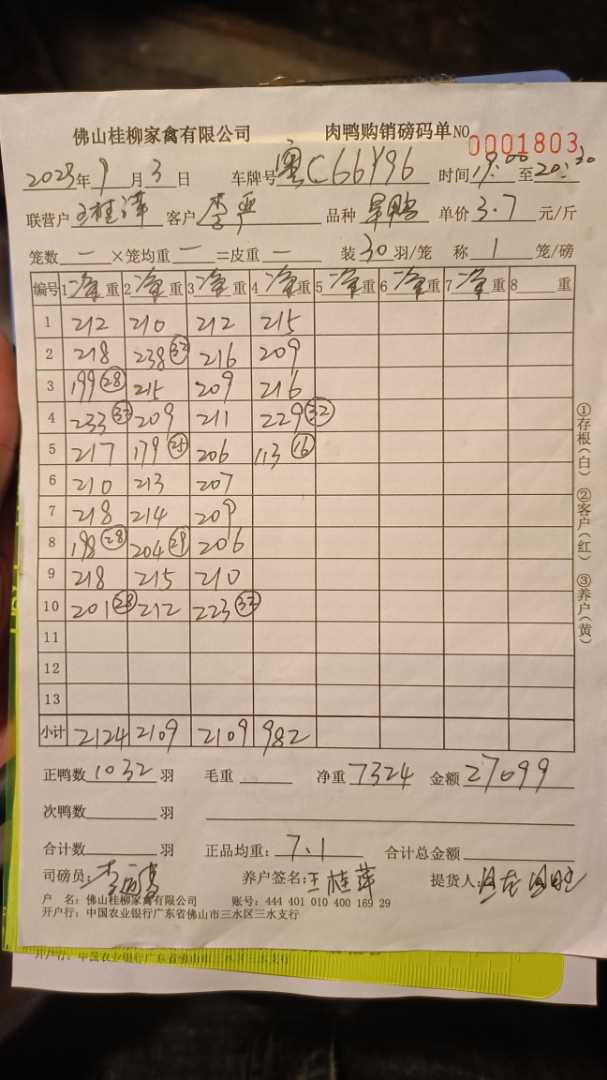 佛山桂柳家禽有限公司 肉鸭购销磅码单NO 0001803
2023年9月3日 车牌号粤C66Y96 时间19:00至20:30
联营户王桂萍 客户李 品种旱鸭 单价3.7元/斤
笼数一×笼均重一=皮重一 装30羽/笼 称1笼/磅
编号 1净重 2净重 3净重 4净重 5净重 6净重 7净重 8 重
1 212 210 212 215
2 218 238(33) 216 209
3 199(28) 215 209 216
4 233(33) 209 211 229(32)
5 217 179(25) 206 113(16)
6 210 213 207
7 218 214 209
8 198(28) 204(29) 206
9 218 215 210
10 201(28) 212 223(32)
11
12
13
小计 2124 2109 2109 982
正鸭数1032羽 毛重 净重7324 金额27099
次鸭数 羽
合计数 羽 正品均重:7.1 合计总金额
司磅员:李 养户签名:王桂萍 提货人:
户 名:佛山桂柳家禽有限公司 账号:444 401 010 400 169 29
开户行:中国农业银行广东省佛山市三水区三水支行
①存根(白) ②客户(红) ③养户(黄)
开户行:中国农业银行广东省佛山市三水区三水支行